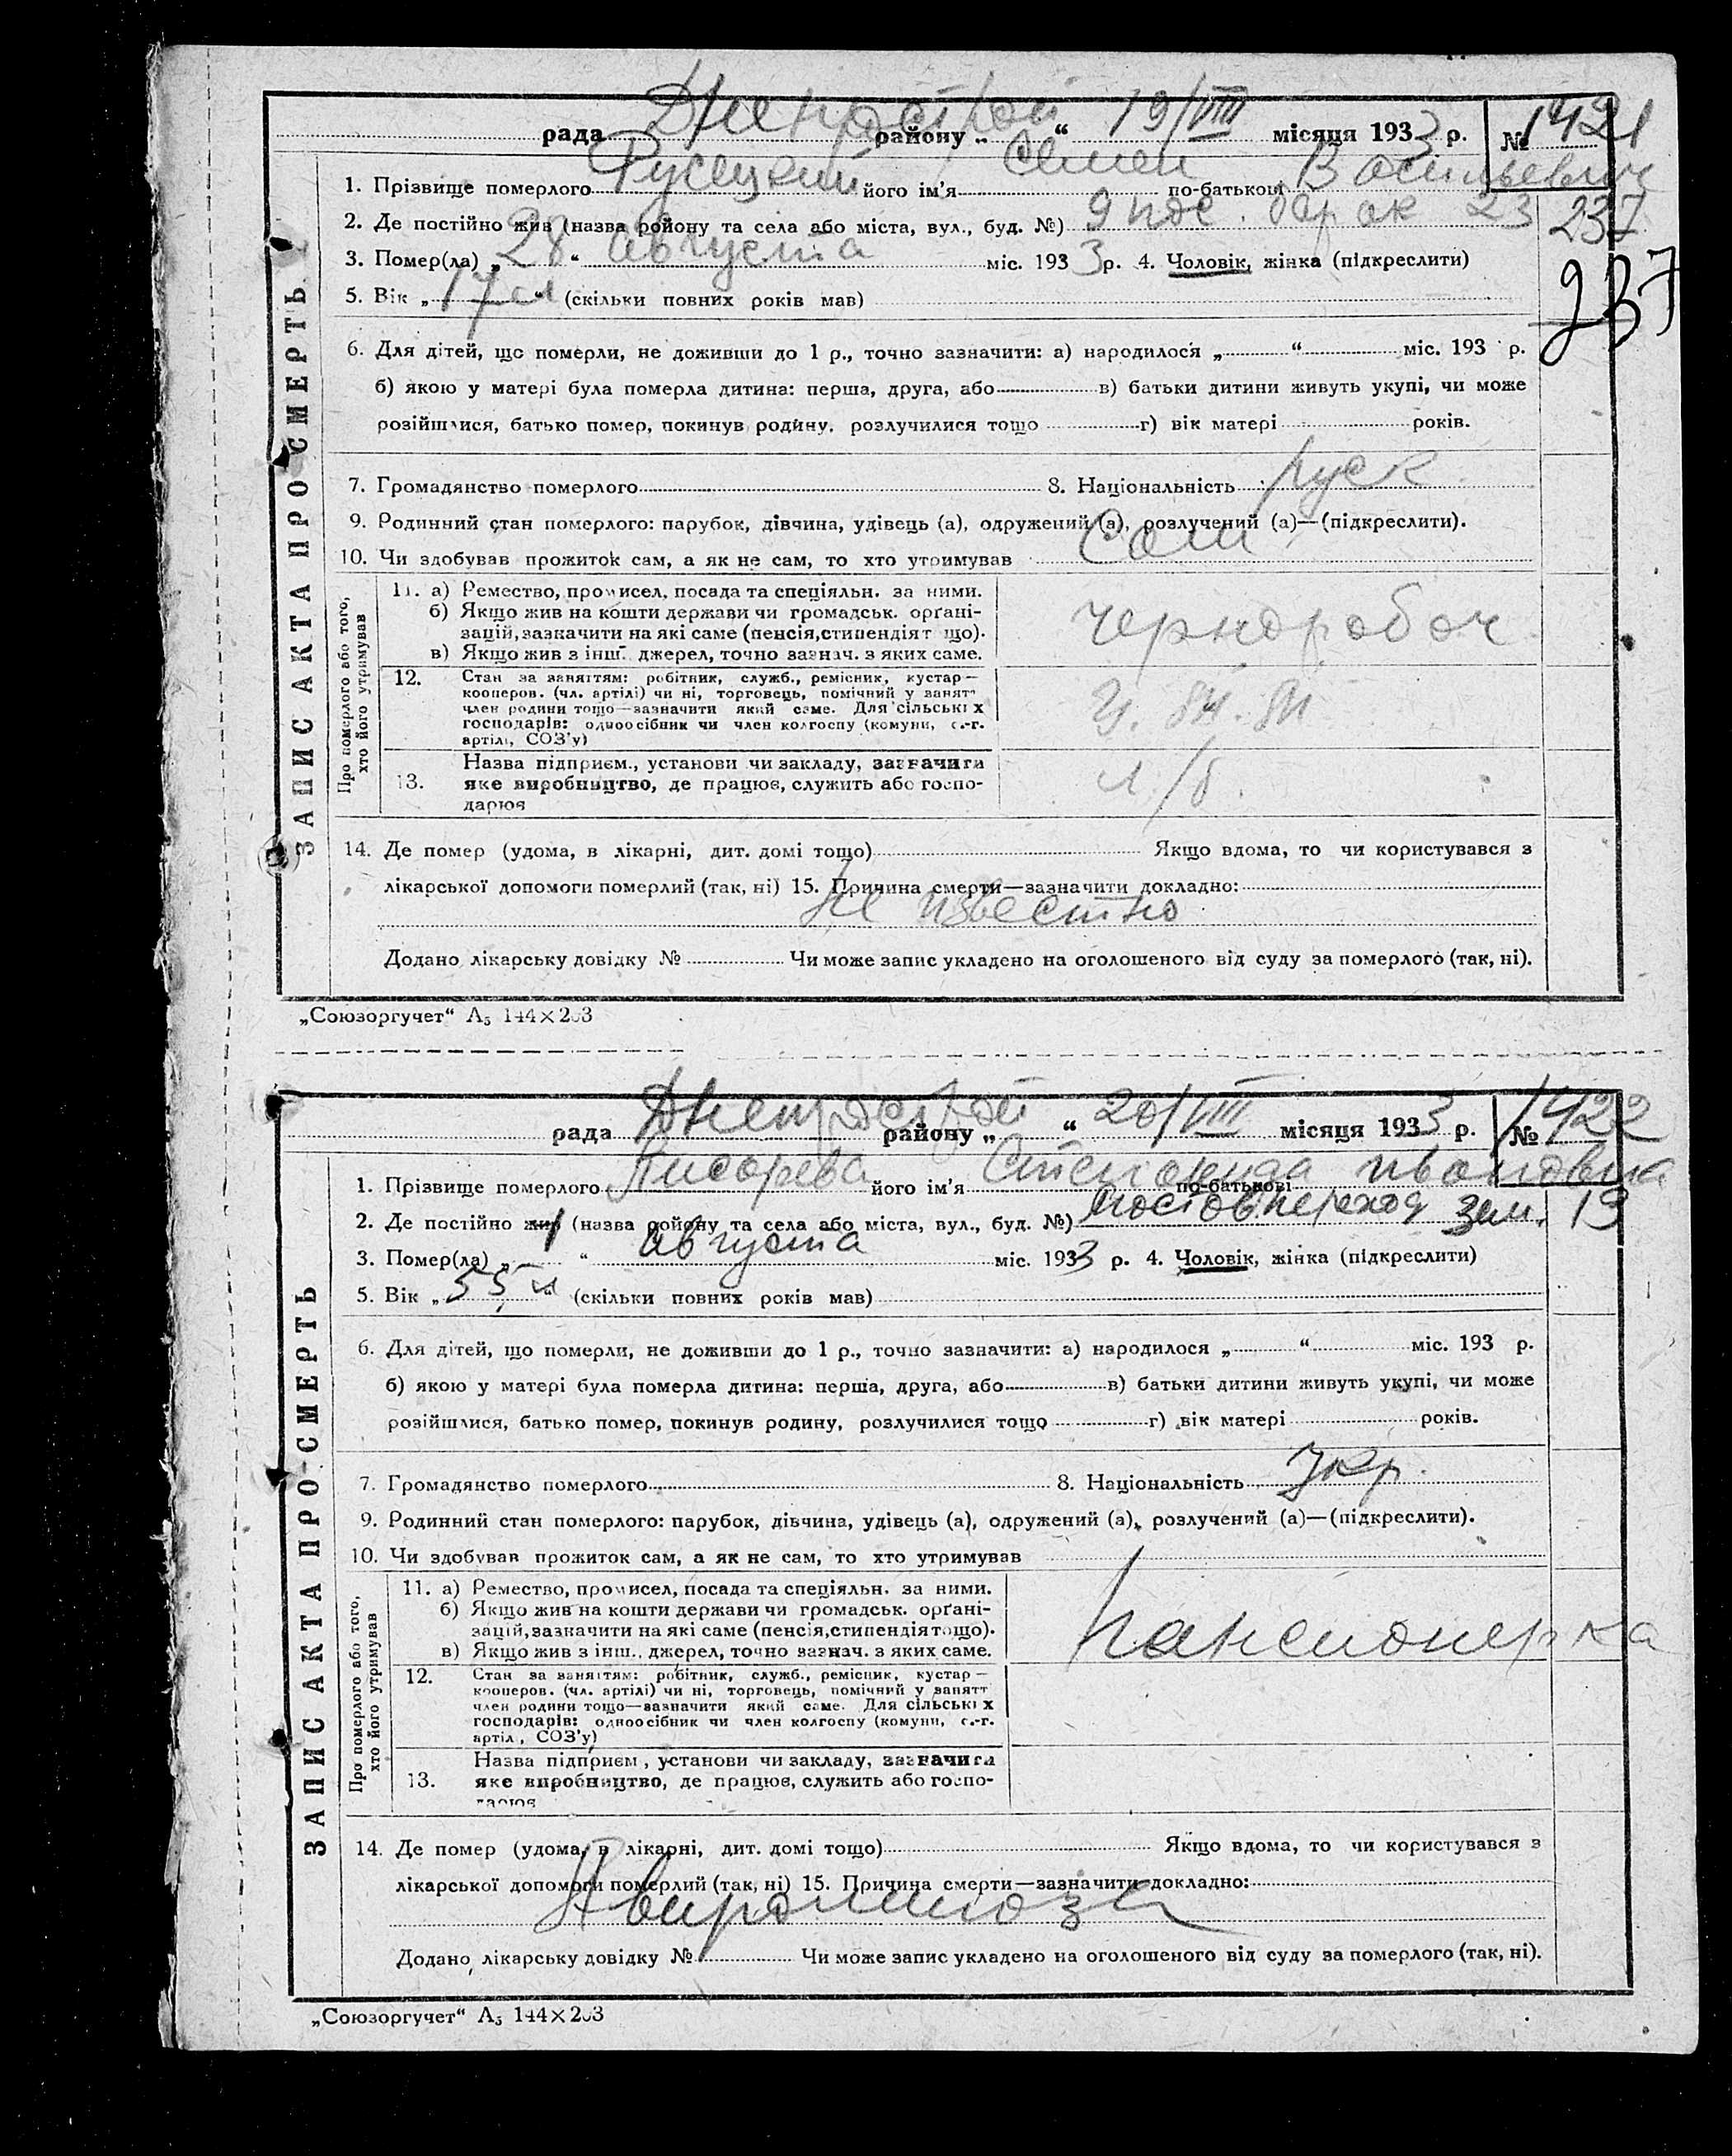 Днепрострой
рада районy „ “ 19/VIII місяця 1933 р. № 1421
1. Прізвище померлого Русецкий його ім'я Семен по-батькові Васильевич
2. Де постійно жив (назва району та села або міста, вул., буд. №) 9 пос. барак 23 237
3. Помер(ла) „ 28 “ августа міс. 1933 р. 4. Чоловік, жінка (підкреслити) 237
5. Вік „ 17 л “ (скільки повних років мав)
6. Для дітей, що померли, не доживши до 1 р., точно зазначити: а) народилося „ “ міс. 193 р.
б) якою у матері була померла дитина: перша, друга, або в) батьки дитини живуть укупі, чи може
розійшлися, батько помер, покинув родину, розлучилися тощо г) вік матері років.
7. Громадянство померлого 8. Національність руск
9. Родинний стан померлого: парубок, дівчина, удівець (а), одружений (а), розлучений (а)—(підкреслити).
10. Чи здобував прожиток сам, а як не сам, то хто утримував Сам
ЗАПИС АКТА ПРО СМЕРТЬ
Про померлого або того, хто його утримував
11. а) Ремество, промисел, посада та спеціяльн. за ними.
б) Якщо жив на кошти держави чи громадськ. орґані-
зацій, зазначити на які саме (пенсія, стипендія т що).
в) Якщо жив з інш. джерел, точно зазнач. з яких саме.
чернорабоч
12. Стан за заняттям: робітник, служб., ремісник, кустар—
кооперов. (чл. артілі) чи ні, торговець, помічний у занят
член родини тощо—зазначити який саме. Для сільськіх
господарів: одноосібник чи член колгоспу (комуни, с.-г.
артілі, СОЗ'у)
13. Назва підприєм., установи чи закладу, зазначити
яке виробництво, де працює, служить або госпо-
дарює
14. Де помер (удома, в лікарні, дит. домі тощо) Якщо вдома, то чи користувався з
лікарської допомоги померлий (так, ні) 15. Причина смерти—зазначити докладно:
Не известно
Додано лікарську довідку № Чи може запис укладено на оголошеного від суду за померлого (так, ні).
„Союзоргучет“ А5 144×203
Днепрострой
рада району „ “ 20/VIII місяця 1933 р. № 1422
1. Прізвище померлого Писарева його ім'я Степанида по-батькові Ивановна
2. Де постійно жив (назва району та села або міста, вул., буд. №) Мостов. переход зем. 19
3. Помер(ла) „ 1 “ августа міс. 1933 р. 4. Чоловік, жінка (підкреслити)
5. Вік „ 55 л “ (скільки повних років мав)
6. Для дітей, що померли, не доживши до 1 р., точно зазначити: а) народилося „ “ міс. 193 р.
б) якою у матері була померла дитина: перша, друга, або в) батьки дитини живуть укупі, чи може
розійшлися, батько помер, покинув родину, розлучилися тощо г) вік матері років.
7. Громадянство померлого 8. Національність Укр.
9. Родинний стан померлого: парубок, дівчина, удівець (а), одружений (а), розлучений (а)—(підкреслити).
10. Чи здобував прожиток сам, а як не сам, то хто утримував
ЗАПИС АКТА ПРО СМЕРТЬ
Про померлого або того, хто його утримував
11. а) Ремество, промисел, посада та спеціяльн. за ними.
б) Якщо жив на кошти держави чи громадськ. орґані-
зацій, зазначити на які саме (пенсія, стипендія тощо).
в) Якщо жив з інш. джерел, точно зазнач. з яких саме.
пансионерка
12. Стан за заняттям: робітник, служб., ремісник, кустар—
кооперов. (чл. артілі) чи ні, торговець, помічний у занятт
член родини тощо—зазначити який саме. Для сільськіх
господарів: одноосібник чи член колгоспу (комуни, с.-г.
артіл, СОЗ'у)
13. Назва підприєм, установи чи закладу, зазначити
яке виробництво, де працює, служить або госпо-
дарює
14. Де помер (удома, в лікарні, дит. домі тощо) Якщо вдома, то чи користувався з
лікарської допомоги померлий (так, ні) 15. Причина смерти—зазначити докладно:
Додано лікарську довідку № Чи може запис укладено на оголошеного від суду за померлого (так, ні).
„Союзоргучет“ А5 144×203